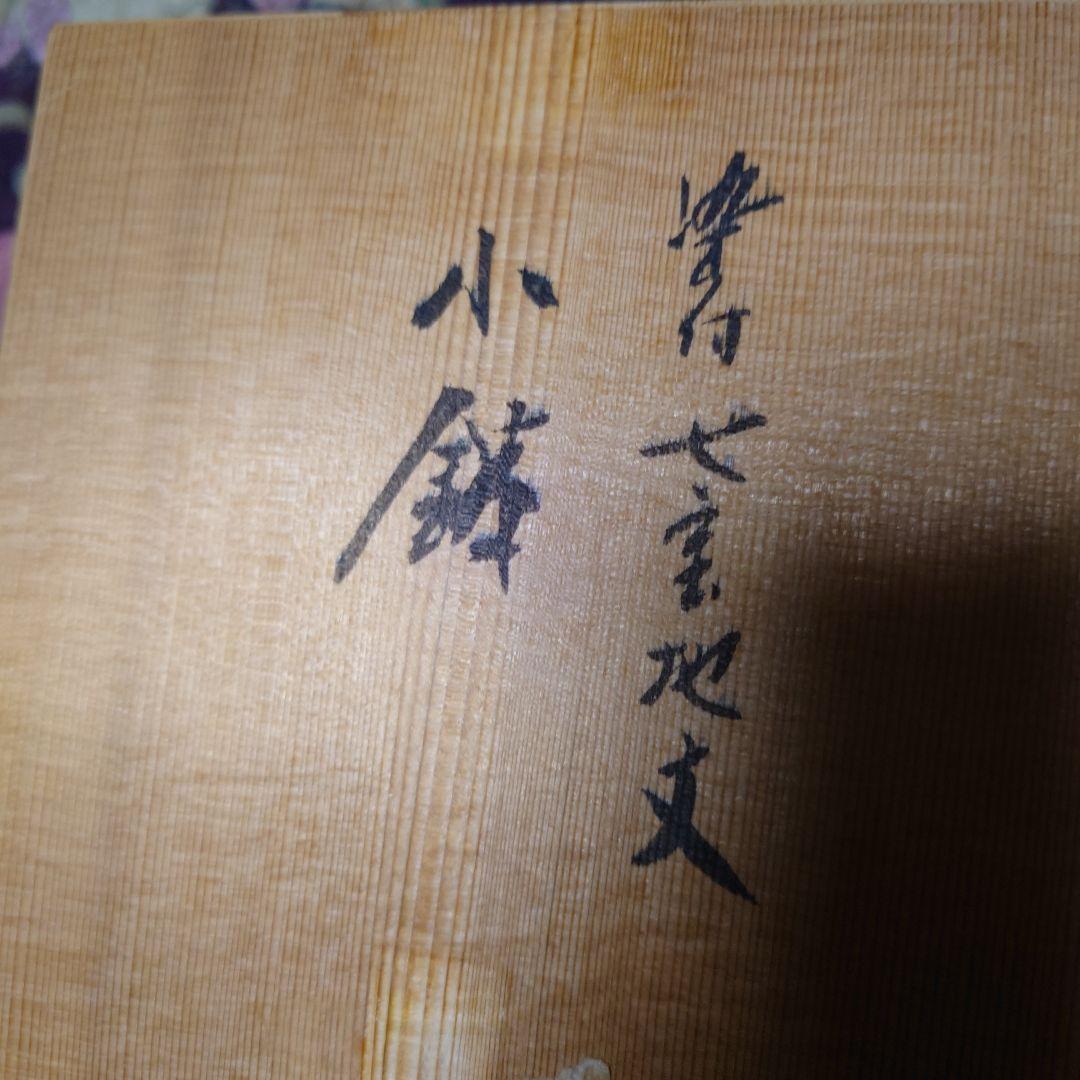 染付七宝地文
小鉢